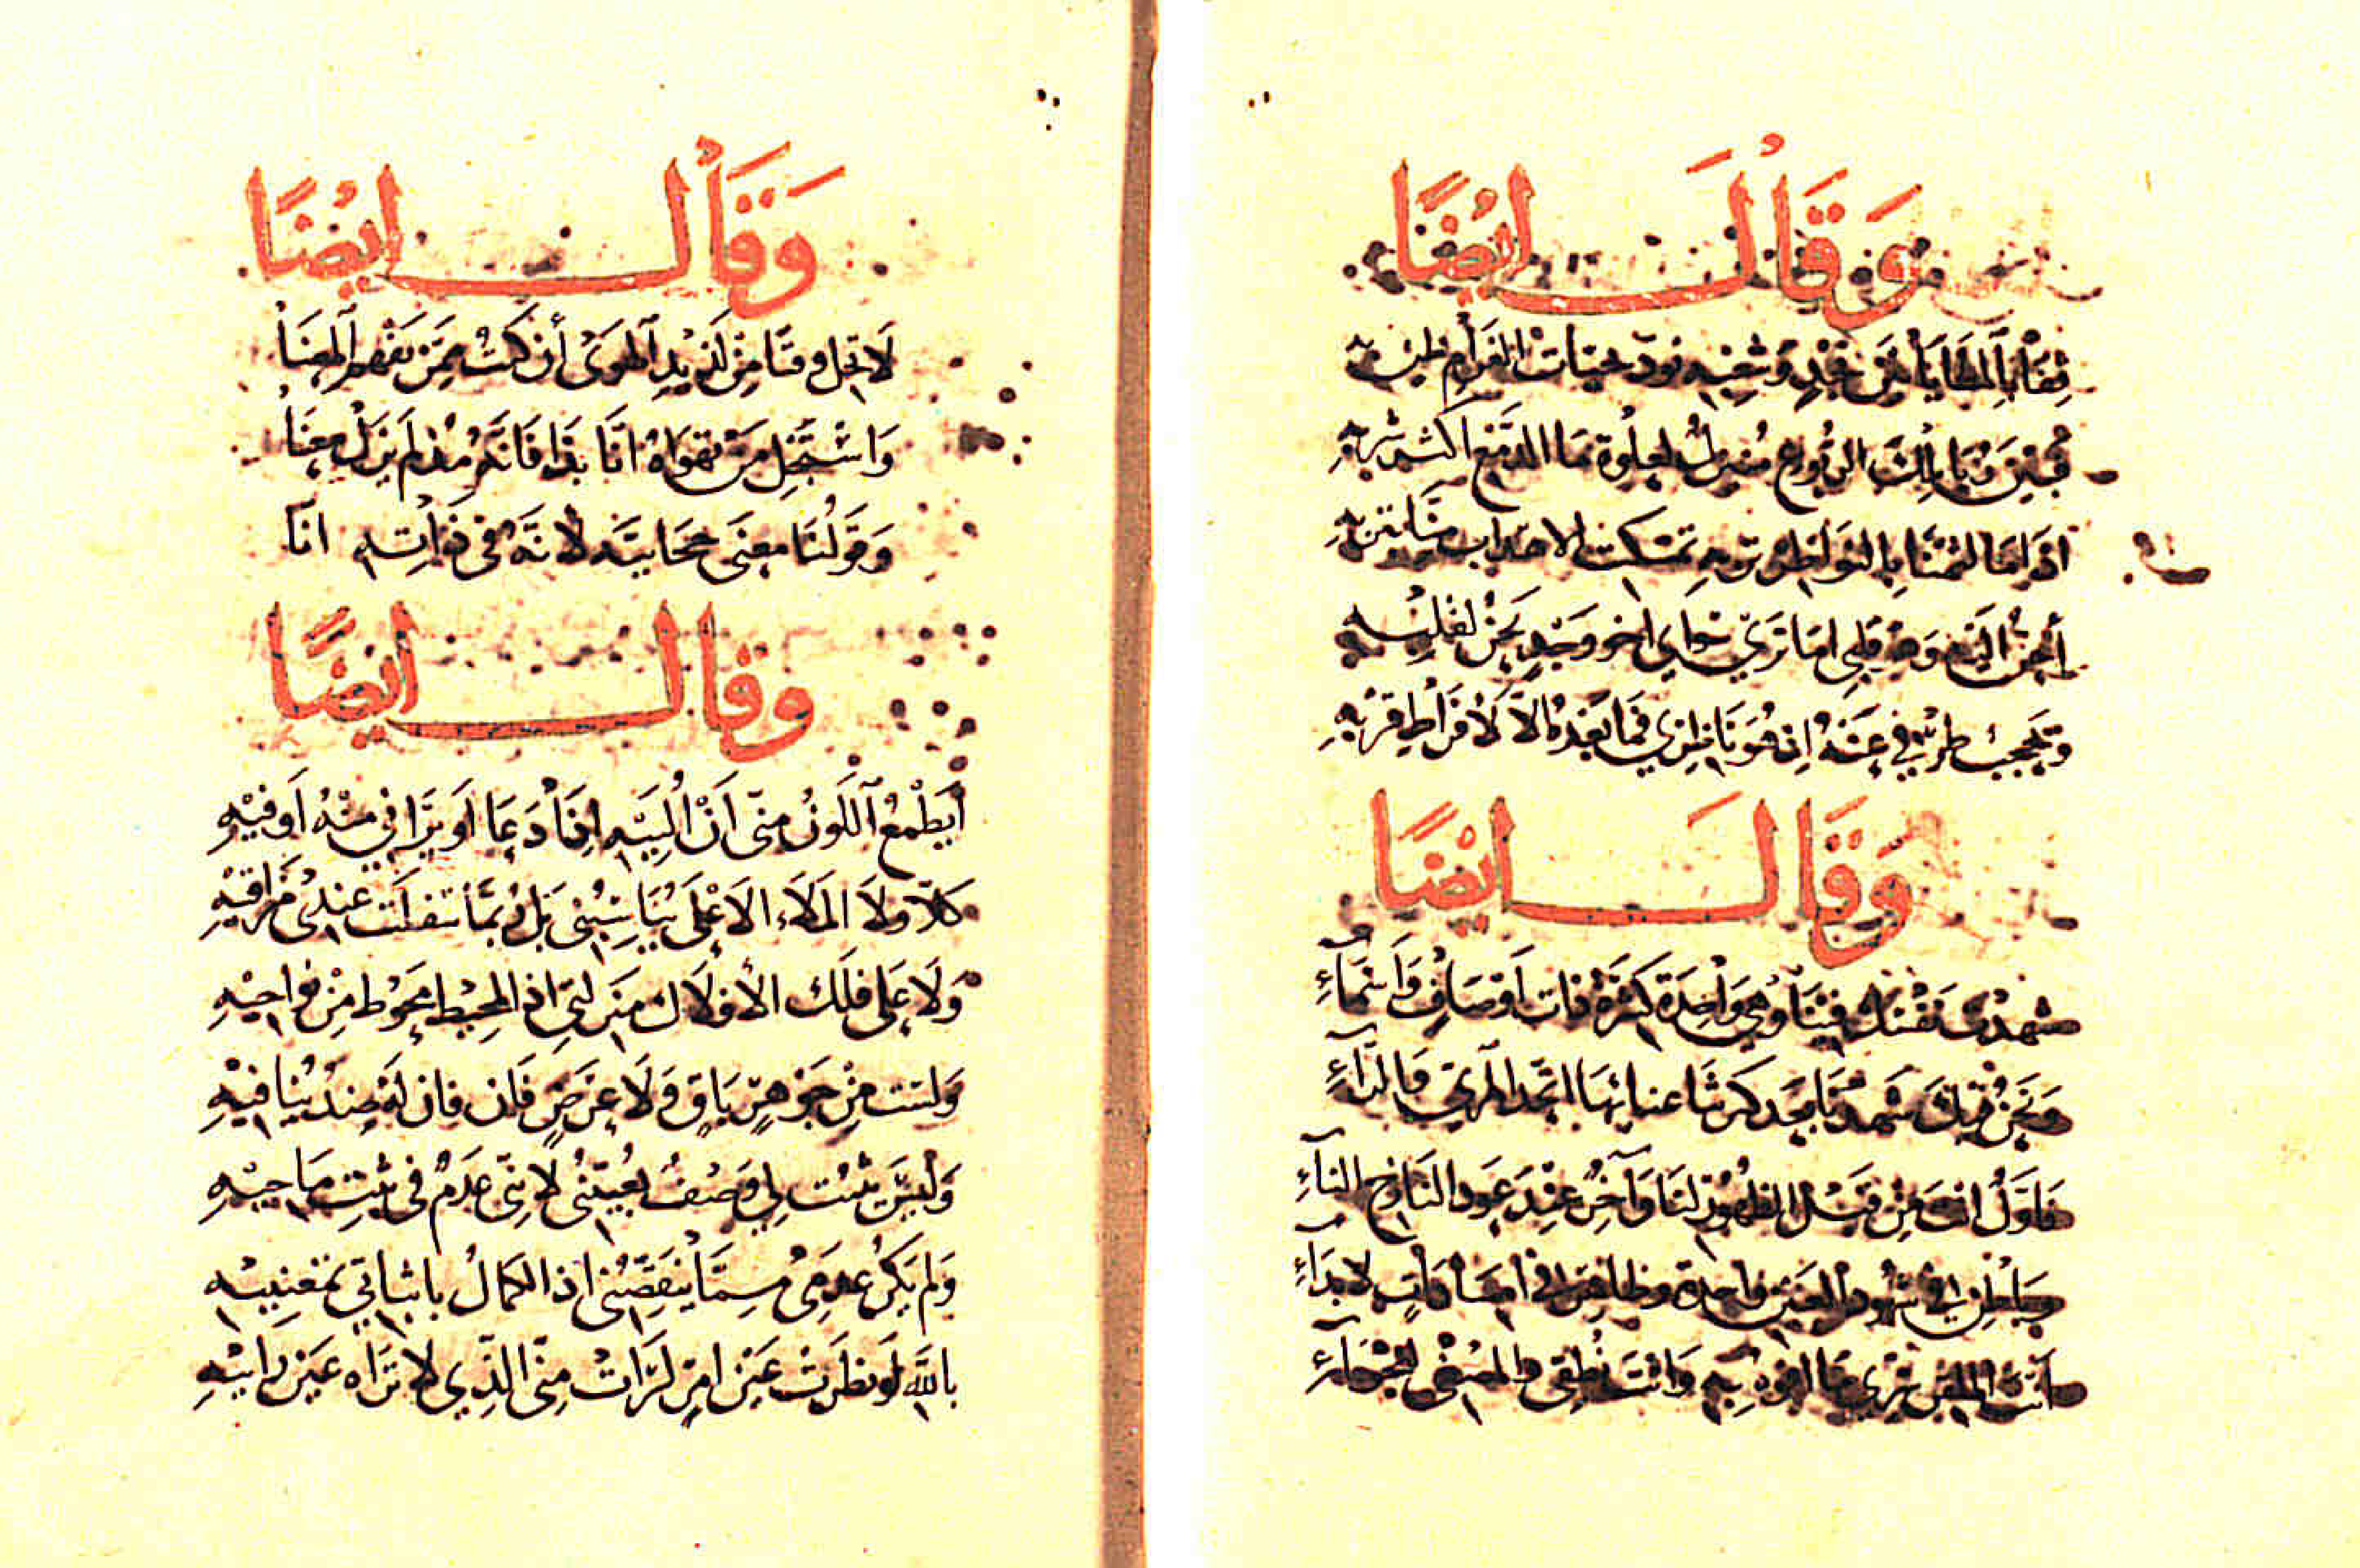 وَقَالَ ايْضًا
قِفَا بِالمَطَايَا عَن نَجْدٍ وَشِعْبِهِ نودّ تحيّات الغرام
فبين رُبَا تلك الربُوع مُنيزل لعلوة مَا الدمع
اذا مَا لثمنَا بِالنواظر تربه تمسّكت الاهداب منّا بتربهِ
أحنّ اليه وَهو قلبي امَا ترى سواي اخو وجدٍ يحنّ لقلبه
وَيحجب طرفي عَنهُ اذ هُو ناظري فما بُعْدهُ الّا لافراط قربهِ
وَقَالَ ايْضًا
شهدْت نَفْسَك فينَا وَهي وَاحِدَة كثيرَة ذات اوْصَافٍ وَاسْمَآءِ
وَنحنُ فيك شهدْنَا بعد كثرتنَا عينا بهَا اتّحد المرئي وَالرّآءِ
فاوّلٌ انت مِنْ قَبْل الظهُور لنَا وَآخرٌ عِنْدَ عَود النازح النآءِ
وَبَاطِن في شهُود العَين وَاحدة وظاهر في امتيازاتٍ لابدَآءِ
انت الملقّن سرّي مَا افوه به وَانتَ نُطقي وَالمصْغي لنجْوآءِ
وَقَالَ ايْضًا
لَا تخل وقتًا مِنْ لَذيْدِ الهَوَى أن كنتُ ممَّن يَفْهم المعنَا
وَاسْتجْلِ مَنْ تهوَاهُ انّا بدَا فَانّهُ مُذ لم يزل معنَا
وَقَوْلُنَا معنَى حجَابيّه لانّه فى ذاته انّا
وقال ايضًا
أَيَطْمَعُ اللَّوْنُ منّى اَنْ اُلَبّيَهِ اِذَا دَعَا اَو يَرَانِي مِنْهُ اَو فيْهِ
كَلّا ولَا المَلَاءُ الاعْلَى يُنَاسِبُنى بَلْ رُبّمَا سَفلَت عندى مَرَاقيْهِ
وَلَا عَلى فلَك الأفْلَاك مَنزلتى اذ المحِيْط محَوْط مِنْ نوَاحيْهِ
وَلسْت مِنْ جَوْهرٍ بَاقٍ وَلَا عَرَضٍ فَان فان لَهُ ضدّ يُنافيْهِ
وَليْسَ يثبُت لي وَصْفٌ يُعيّنُنى لانّنى عَدَمٌ فى ثبتِ مَاحيْهِ
وَلم يَكنْ عدَمى مِمّا يُنقِصُنى اذ الكمَالُ باثباتي نمَغنيْه
باللّه لَو نظرَتْ عَيْن امرٍ لرَاتْ منّى الذِي لا ترَاه عَين رَايْهِ